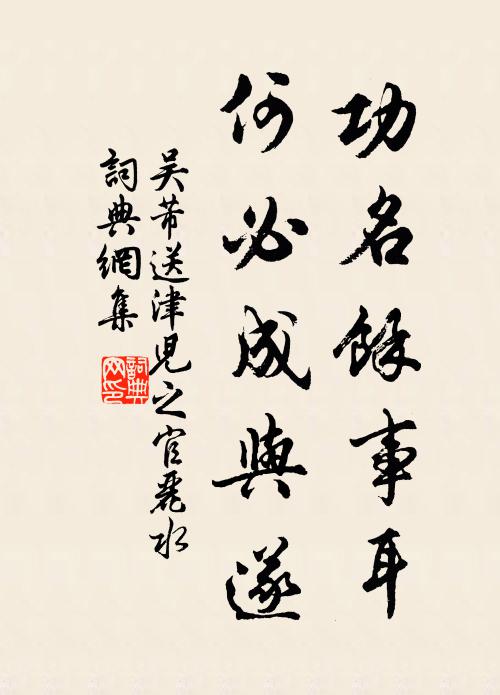 功名餘事耳
何必成與遂
吴芾送津兒之官麗水
詞典網集
詞典网印